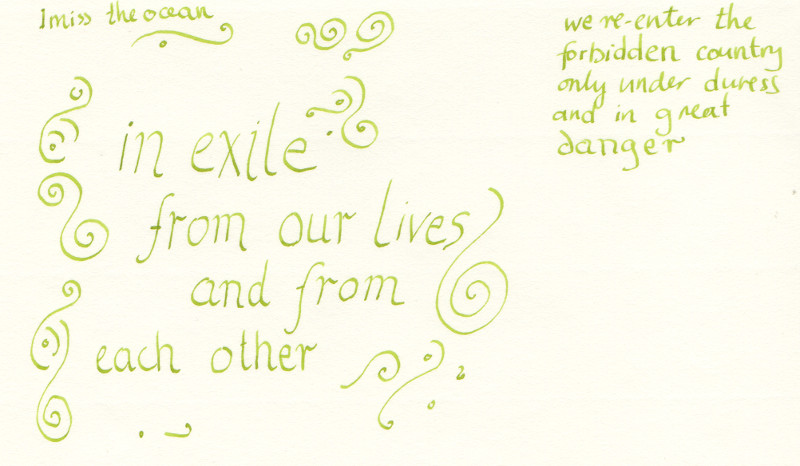 I miss the ocean
in exile
from our lives
and from
each other
we re-enter the
forbidden country
only under duress
and in great
danger